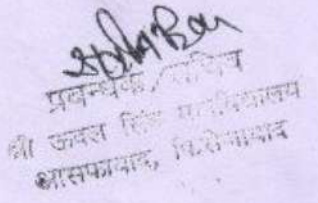 प्रबन्धक/सचिव
श्री ऊदल सिंह महाविद्यालय
आसफाबाद, फिरोजाबाद